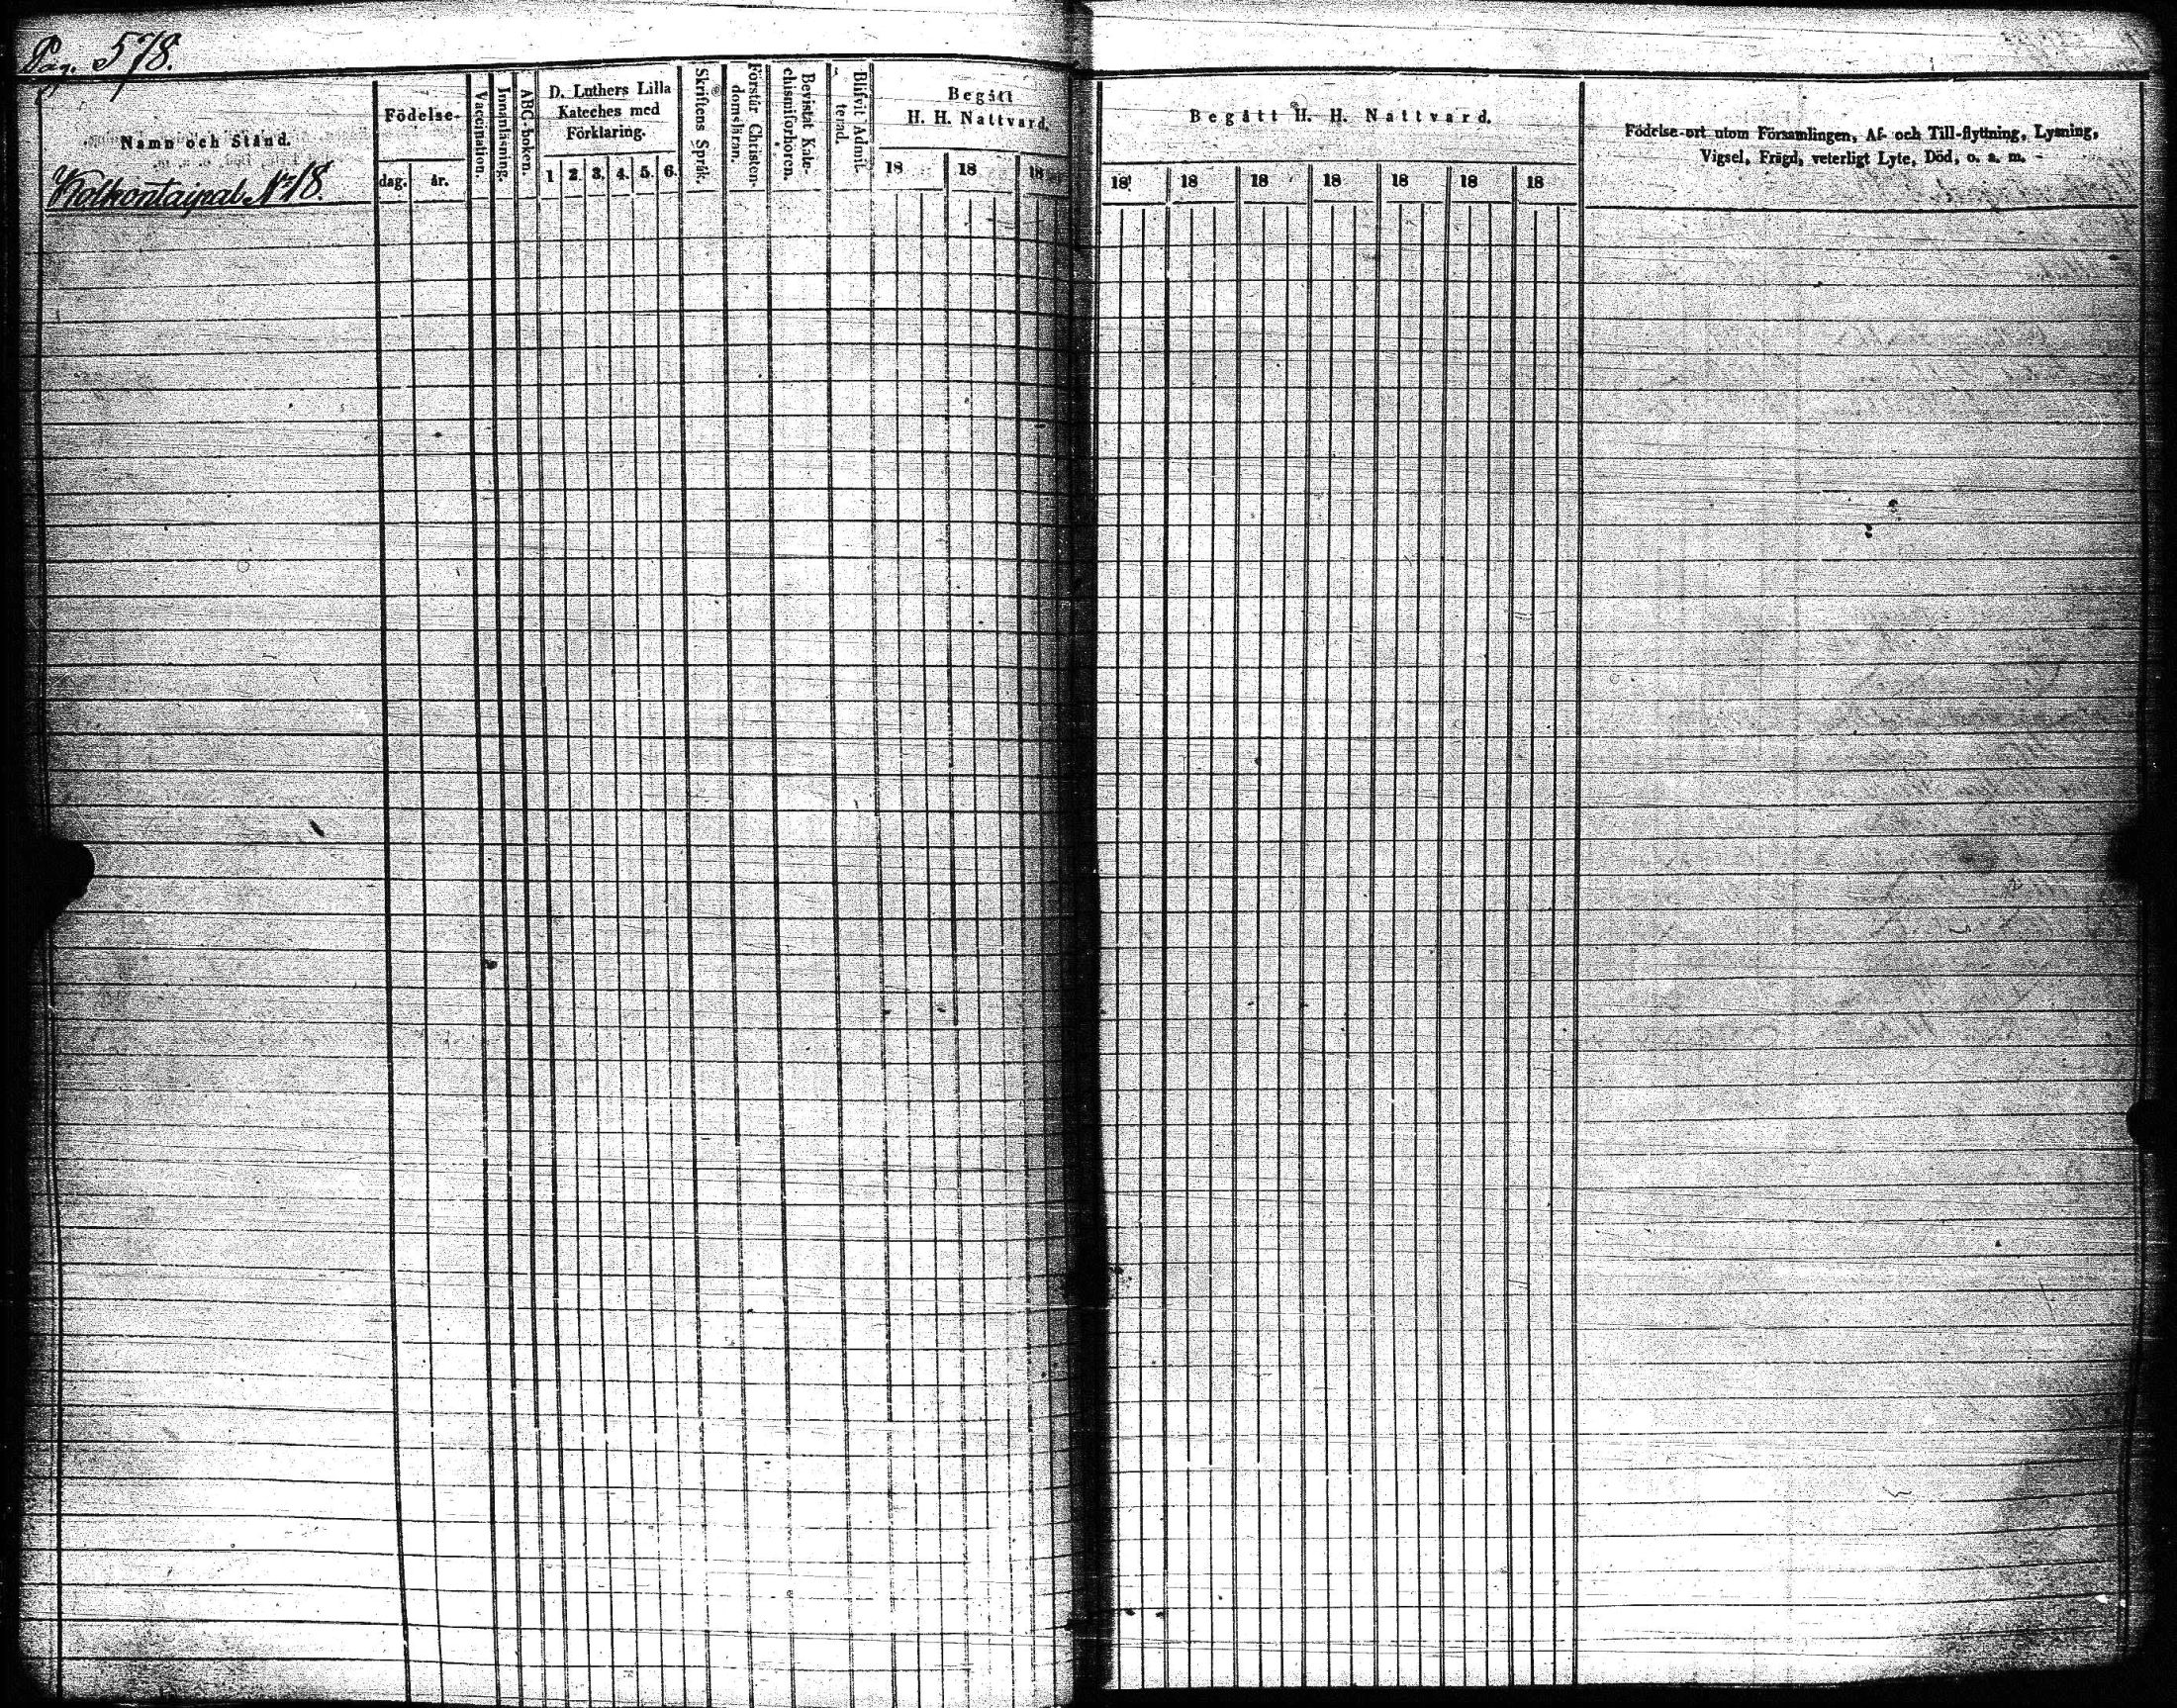 Pag. 578.
Namn och Stånd.
Kolkontaipal № 18.
Födelse-
dag. år.
Vaccination.
Innanläsning.
ABC-boken.
D. Luthers Lilla
Kateches med
Förklaring.
1 2 3. 4. 5. 6.
Skriftens Språk.
Förstår Christen-
domsläran.
Bevistat Kate-
chismiförhören.
Blifvit Admit-
terad.
Begått
H. H. Nattvard.
18 18 18
Begått H. H. Nattvard.
18 18 18 18 18 18 18
Födelse-ort utom Församlingen, Af- och Till-flyttning, Lysning,
Vigsel, Frägd, veterligt Lyte, Död, o. s. m.